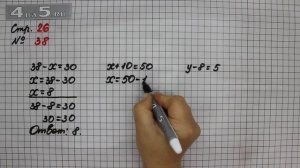 4АПИСКИ
Стр. 26
№ 38
38-х=30
х=38-30
х=8
38-8=30
30=30
Ответ: 8.
х+10=50
х=50-1
у-8=5